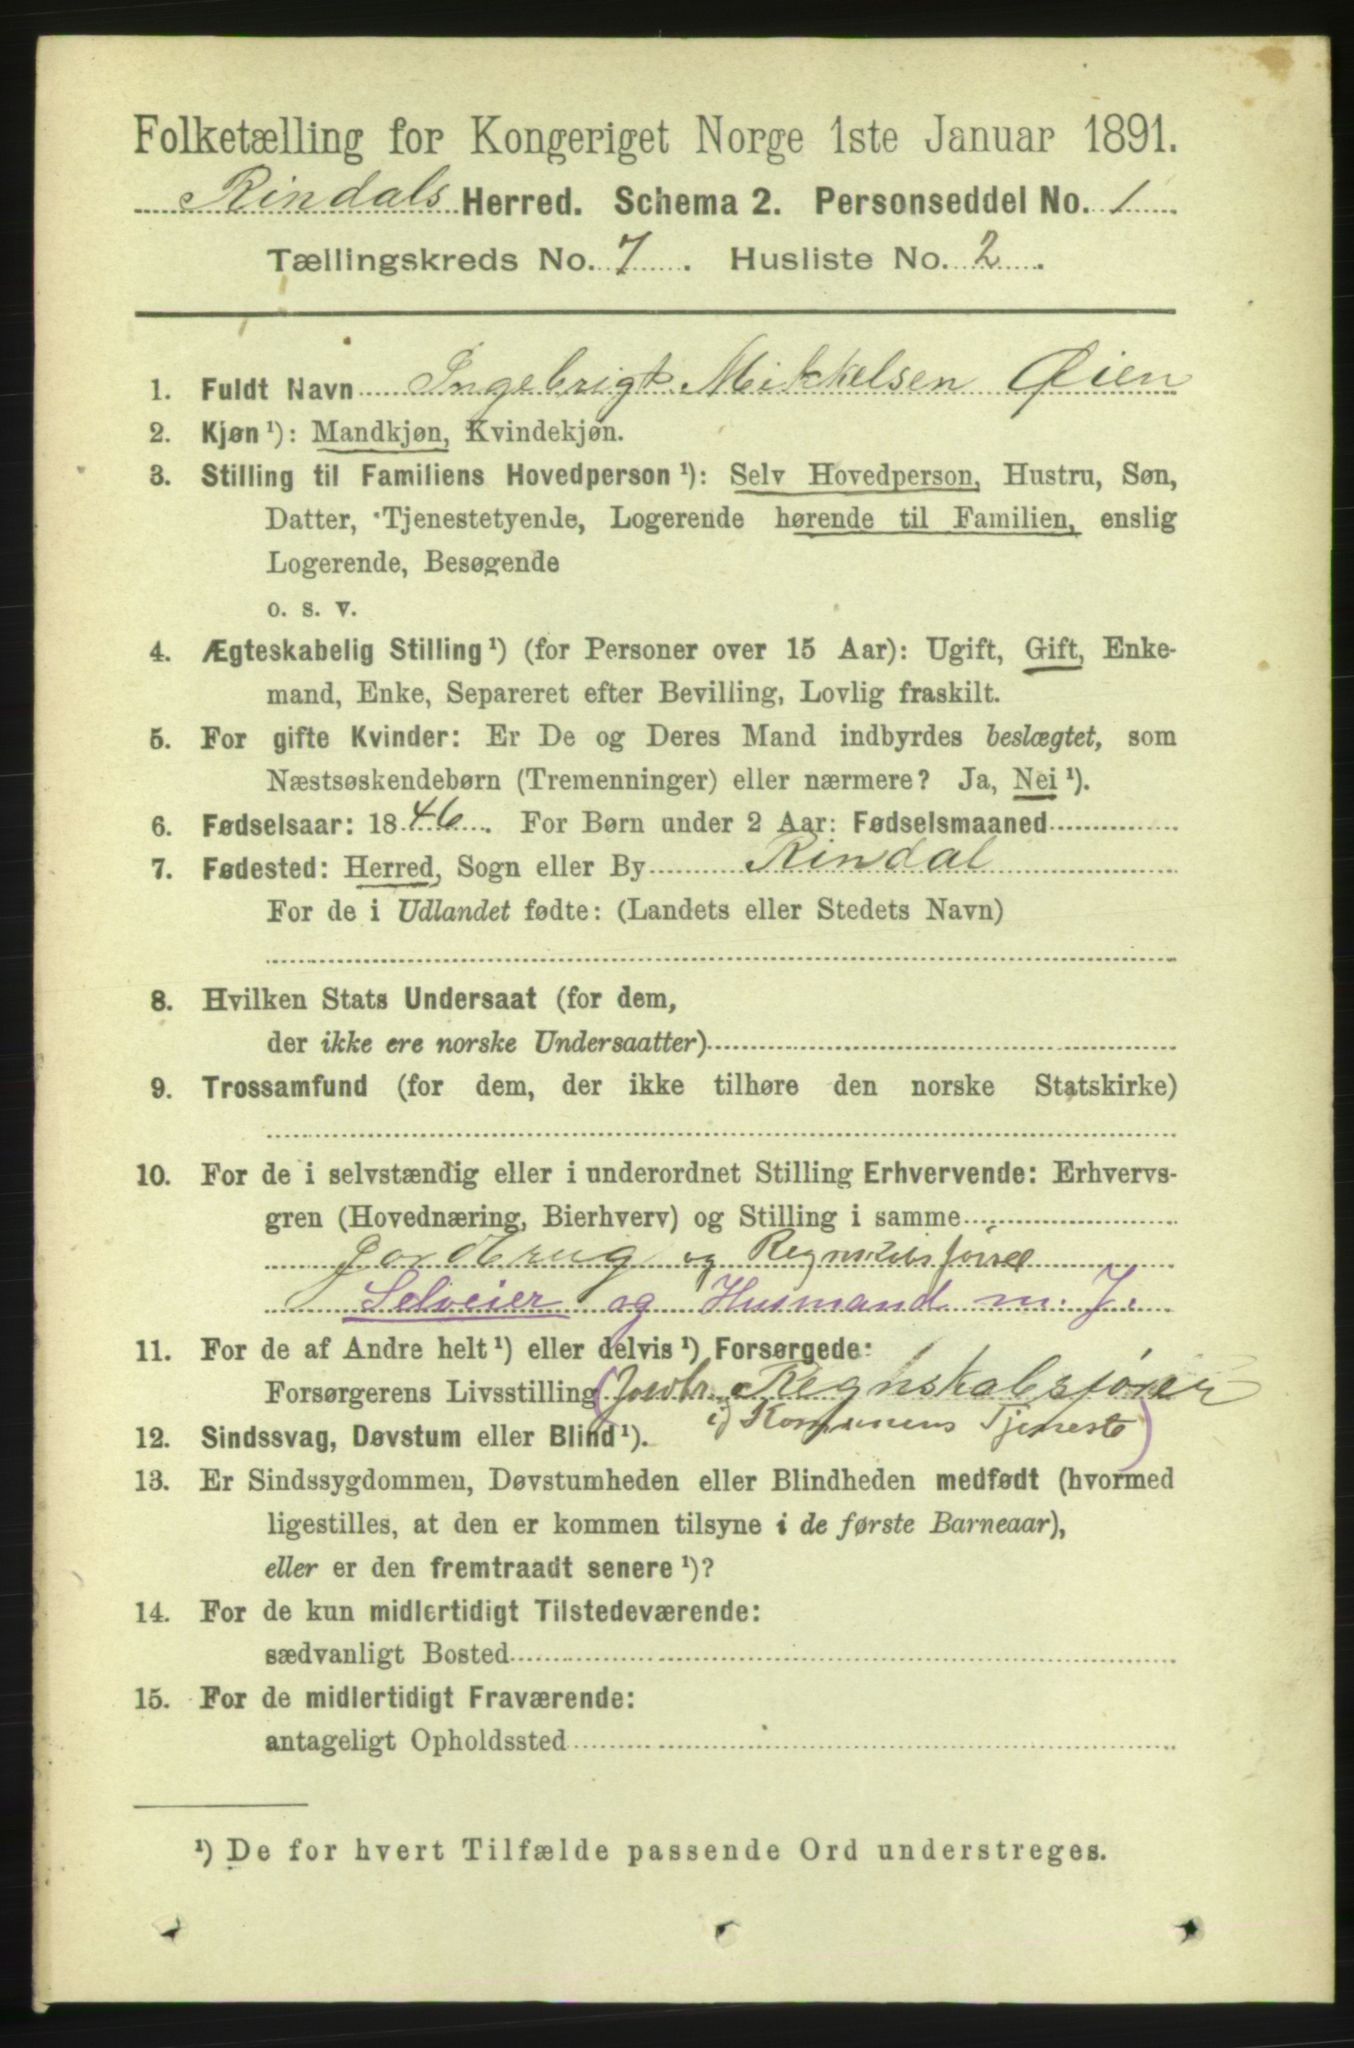 Folketælling for Kongeriget Norge 1ste Januar 1891.
Rindals Herred. Schema 2. Personseddel No. 1
Tællingskreds No. 7. Husliste No. 2.
1. Fuldt Navn Ingebrigt Mikkelsen Øien
2. Kjøn ¹): Mandkjøn, Kvindekjøn.
3. Stilling til Familiens Hovedperson ¹): Selv Hovedperson, Hustru, Søn,
Datter, Tjenestetyende, Logerende hørende til Familien, enslig
Logerende, Besøgende
o. s. v.
4. Ægteskabelig Stilling ¹) (for Personer over 15 Aar): Ugift, Gift, Enke-
mand, Enke, Separeret efter Bevilling, Lovlig fraskilt.
5. For gifte Kvinder: Er De og Deres Mand indbyrdes beslægtet, som
Næstsøskendebørn (Tremenninger) eller nærmere? Ja, Nei ¹).
6. Fødselsaar: 1846. For Børn under 2 Aar: Fødselsmaaned
7. Fødested: Herred, Sogn eller By Rindal
For de i Udlandet fødte: (Landets eller Stedets Navn)
8. Hvilken Stats Undersaat (for dem,
der ikke ere norske Undersaatter)
9. Trossamfund (for dem, der ikke tilhøre den norske Statskirke)
10. For de i selvstændig eller i underordnet Stilling Erhvervende: Erhvervs-
gren (Hovednæring, Bierhverv) og Stilling i samme
Jordbrug og Regnskabsfører
Selveier og Husmand m. J.
11. For de af Andre helt ¹) eller delvis ¹) Forsørgede:
Forsørgerens Livsstilling (Jordbr. og Regnskabsfører
i Kommunens Tjeneste)
12. Sindssvag, Døvstum eller Blind ¹).
13. Er Sindssygdommen, Døvstumheden eller Blindheden medfødt (hvormed
ligestilles, at den er kommen tilsyne i de første Barneaar),
eller er den fremtraadt senere ¹)?
14. For de kun midlertidigt Tilstedeværende:
sædvanligt Bosted
15. For de midlertidigt Fraværende:
antageligt Opholdssted
¹) De for hvert Tilfælde passende Ord understreges.